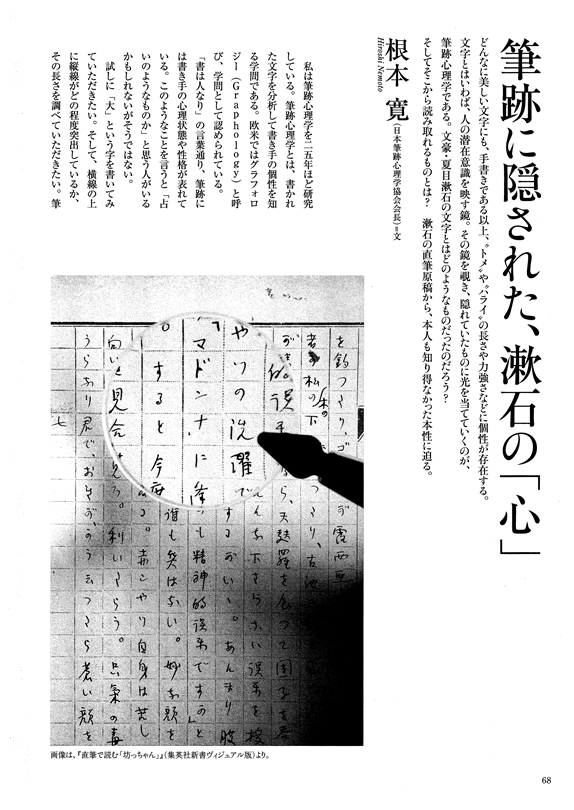 筆跡に隠された、漱石の「心」
どんなに美しい文字にも、手書きである以上、〝トメ〟や〝ハライ〟の長さや力強さなどに個性が存在する。
文字とはいわば、人の潜在意識を映す鏡。その鏡を覗き、隠れていたものに光を当てていくのが、
筆跡心理学である。文豪・夏目漱石の文字とはどのようなものだったのだろう?
そしてそこから読み取れるものとは? 漱石の直筆原稿から、本人も知り得なかった本性に迫る。
根本 寛(日本筆跡心理学協会会長)=文
Hiroshi Nemoto
私は筆跡心理学を二五年ほど研究
している。筆跡心理学とは、書かれ
た文字を分析して書き手の個性を知
る学問である。欧米ではグラフォロ
ジー(Graphology)と呼
び、学問として認められている。
「書は人なり」の言葉通り、筆跡に
は書き手の心理状態や性格が表れて
いる。このようなことを言うと「占
いのようなものか」と思う人がいる
かもしれないがそうではない。
試しに「大」という字を書いてみ
ていただきたい。そして、横線の上
に縦線がどの程度突出しているか、
その長さを調べていただきたい。筆
を釣つたり、ゴ
が露西亜
私の下
天麩羅を食つて団子を
やつの洗濯
するがいい。あんまり
マドンナに
も精神的娯楽ですか」と
すると今度
誰も笑はない。妙な顔を
る。赤シヤツ自身は苦し
利いたらう。只気の毒
うらなり君で、おれが、かう云つたら蒼い顔を
七
画像は、『直筆で読む「坊っちゃん」』(集英社新書ヴィジュアル版)より。
68